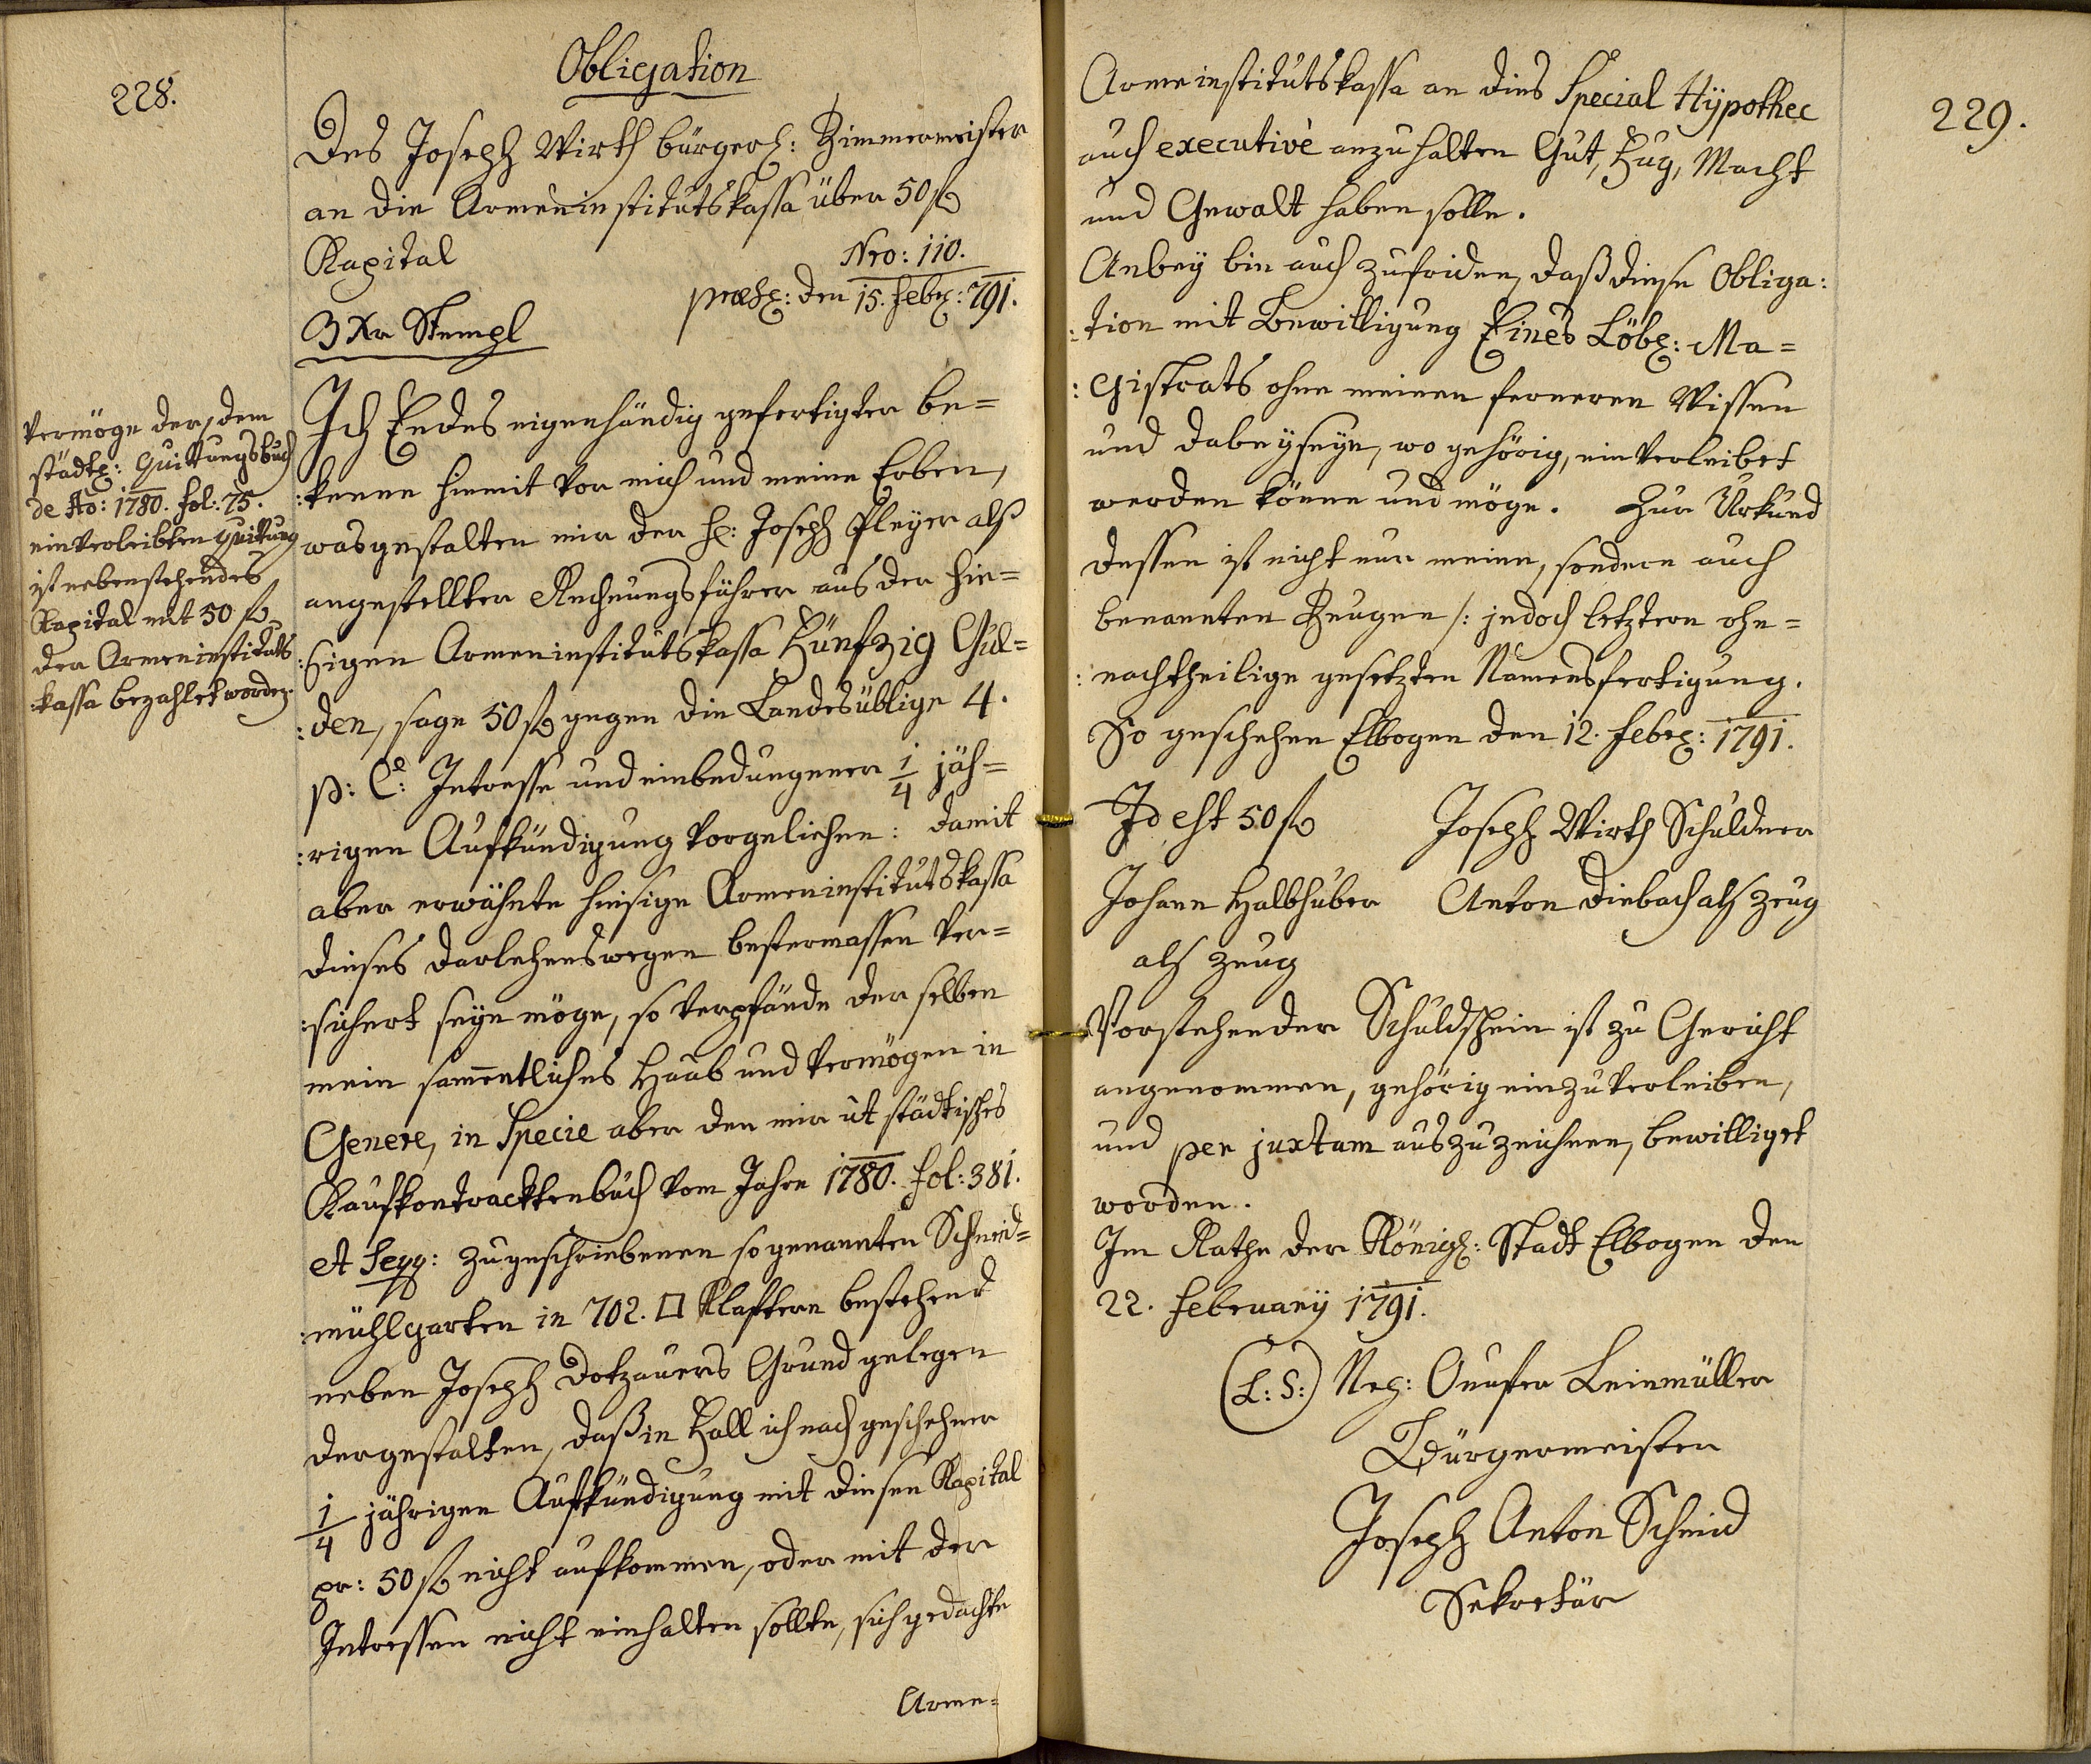 228.
Obligation
Des Joseph Wirth bürgerl: Zimmermeister
an die Armeninstitutskassa über 50 fl
Kapital
Nro: 110.
præs: den 15. Febr: 791.
3 Xr Stempl
Vermöge der, dem
städt: Quittungsbuch
de Ao: 1780. fol: 75.
einverleibten Quittung
ist nebenstehendes
Kapital mit 50 fl
der Armeninstituts
:kassa bezahlet worden.
Ich Endes eigenhändig gefertigter be=
:kenne hiemit vor mich und meine Erben,
wasgestalten mir der H: Joseph Pleyer als
angestellter Rechnungsführer aus der hie=
:sigen Armeninstitutskassa Fünfzig Gul=
:den, sage 50 fl gegen die Landesüblige 4.
p: Ct: Intresse und einbedungener 1/4 jäh=
:rigen Aufkündigung vorgeliehen: damit
aber erwähnte hiesige Armeninstitutskassa
dieses Darlehens wegen bestermassen ver=
:sichert seyn möge, so verpfände der selben
mein sammentliches Haab und Vermögen in
Genere, in Specie aber den mir ut städtisches
Kaufkontracktenbuch vom Jahre 1780. fol: 381.
et seqq: zugeschriebenen sogenannten Schneid=
:mühlgarten in 702. □ Klaftern bestehend
neben Joseph Dotzauers Grund gelegen
dergestalten, daß in Fall ich nach geschehener
1/4 jährigen Aufkündigung mit diesen Kapital
pr: 50 fl nicht aufkommen, oder mit der
Intressen nicht einhalten sollte, sich gedachte
Arme=
229.
Armeinstitutskassa an dies Special Hÿpothec
auch executivè anzuhalten Gut, Fug, Macht
und Gewalt haben solle.
Anbey bin auch zufriden, daß diese Obliga:
:tion mit Bewilligung Eines Löbl: Ma=
:gistrats ohne meinen ferneren Wissen
und dabeyseyn, wo gehörig, einverleibet
werden könne und möge. Zur Urkund
dessen ist nicht nur meine, sondern auch
benannten Zeugen /: jedoch letztern ohn=
:nachtheilige gesetzten Namensfertigung.
So geschehen Elbogen den 12. Febr: 1791.
Id est 50 fl
Joseph Wirth Schuldner
Johann Halbhuber
Anton Diebach als Zeug
als Zeug
Vorstehender Schuldschein ist zu Gericht
angenommen, gehörig einzuverleiben,
und per juxtam auszuzeichnen, bewilliget
worden.
Im Rathe der Königl: Stadt Elbogen den
22. Februarÿ 1791.
(L: S:) Leinmüller
Bürgermeister
Joseph Anton Schmid
Sekretär